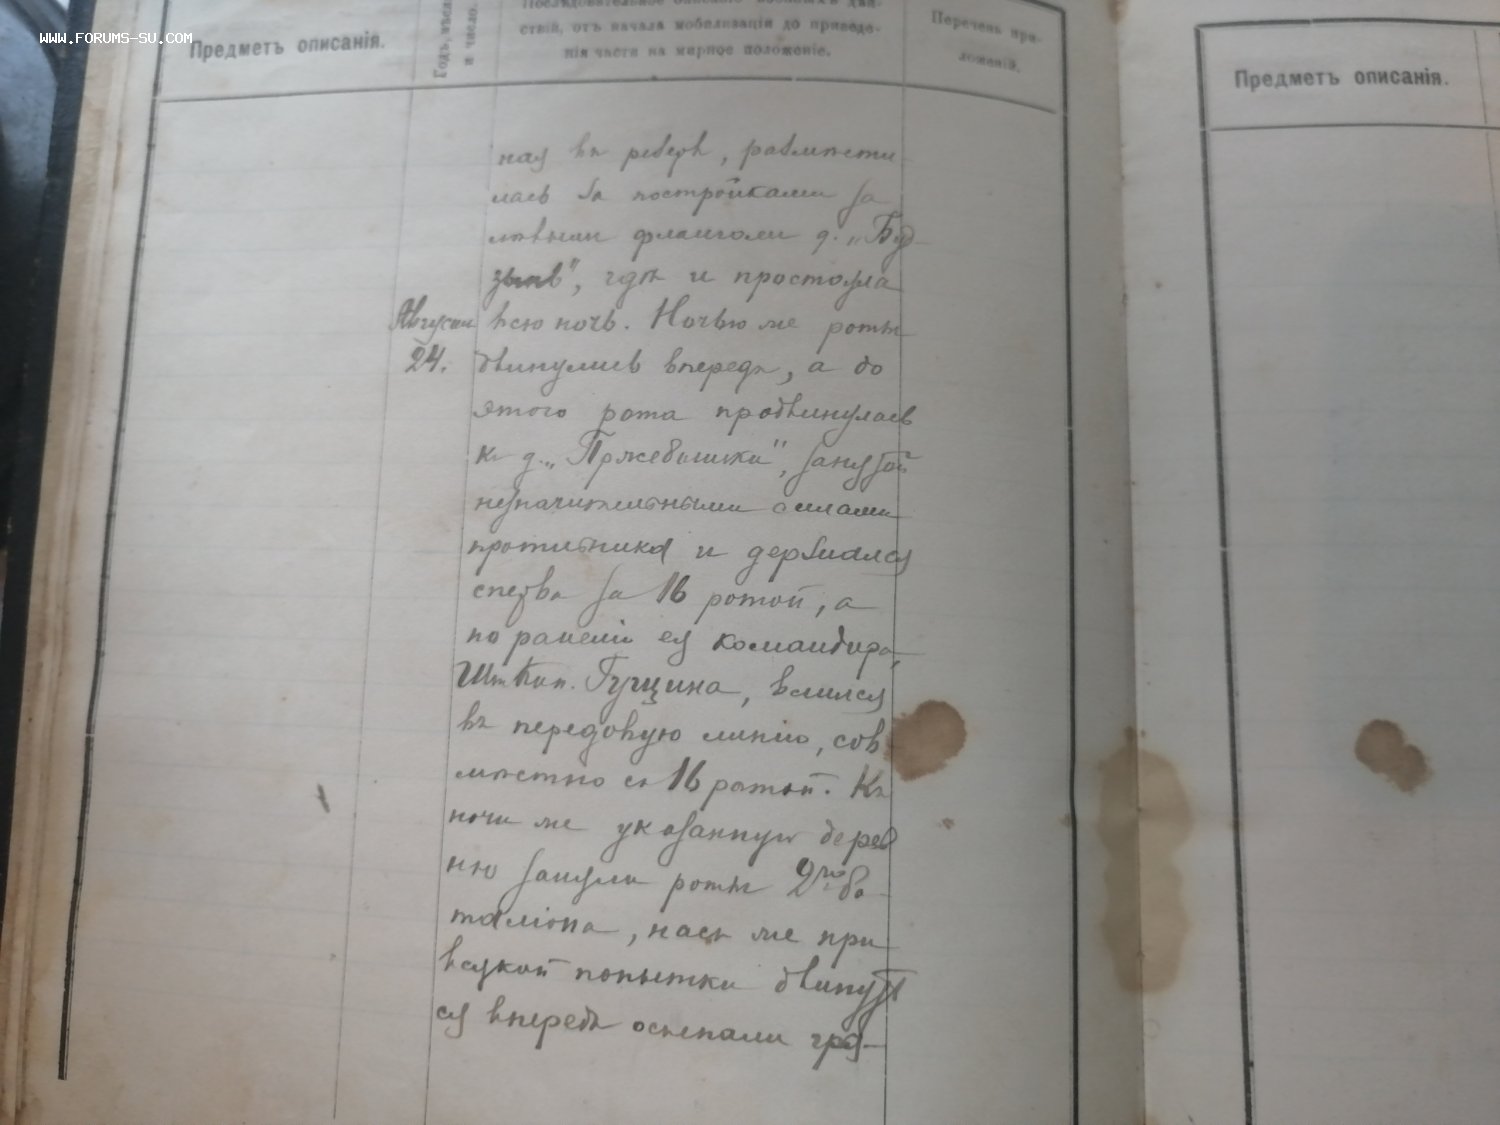 WWW.FORUMS-SU.COM
Предметъ описанія.
Годъ, мѣся
и число.
Послѣдовательное описаніе военныхъ дѣй-
ствій, отъ начала мобилизаціи до приведе-
нія части на мирное положеніе.
Перечень при-
ложеній.
Предметъ описанія.
ная въ резервѣ, размѣсти
лась за постройками за
лѣвымъ флангомъ д. „Буд-
зынь", гдѣ и простояла
Августа
24.
всю ночь. Ночью же роты
двинулись впередъ, а до
этого рота продвинулась
къ д. „Пржебышка", занятой
незначительными силами
противника и держался
сперва за 16 ротой, а
по раненіи ея командира,
Шт. Кап. Гущина, влился
въ передовую линію, сов
мѣстно съ 16 ротой. Къ
ночи же указанную дерев
ню заняли роты 2го ба-
таліона, насъ же при
всякой попытки двинут
ся впередъ осыпали гра-